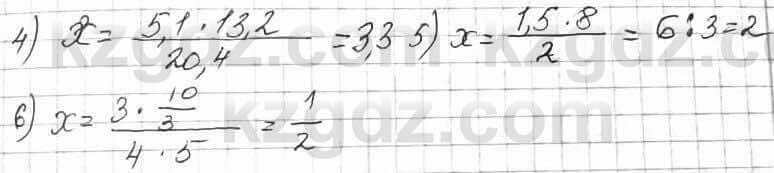 4) x = (5,1 · 13,2) / 20,4 = 3,3 5) x = (1,5 · 8) / 2 = 6 : 3 = 2
6) x = (3 · 10/3) / (4 · 5) = 1/2
kzgdz.com kzgdz.com
kzgdz.com kzgdz.com